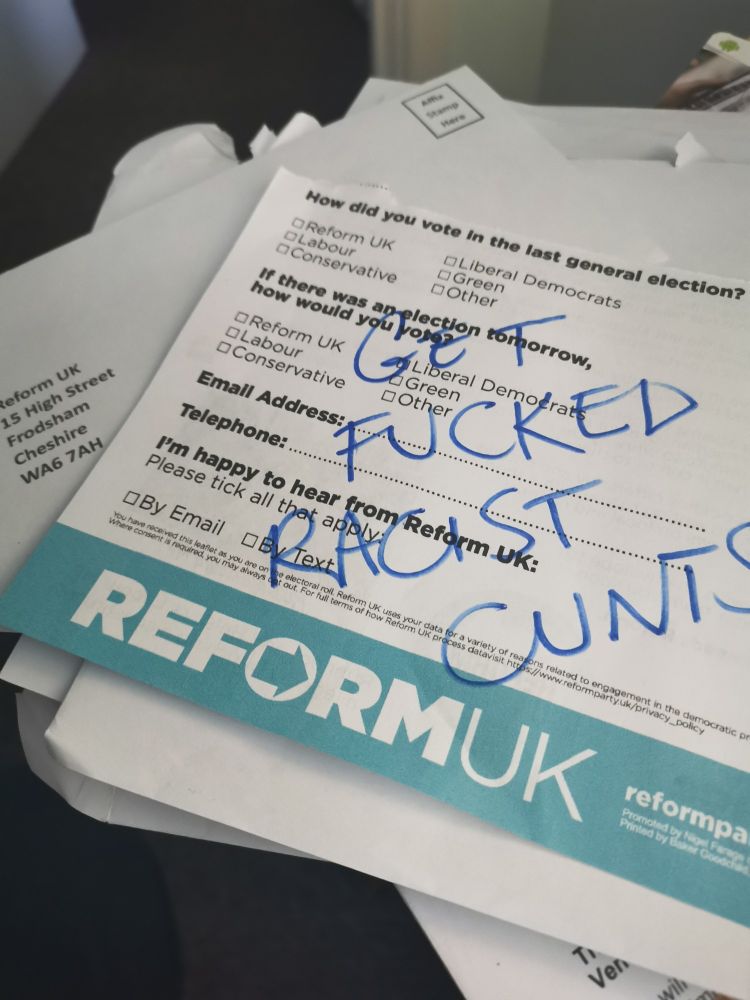 Affix
Stamp
Here
How did you vote in the last general election?
□ Reform UK
□ Labour
□ Conservative
□ Liberal Democrats
□ Green
□ Other
If there was an election tomorrow,
how would you vote?
□ Reform UK
□ Labour
□ Conservative
□ Liberal Democrats
□ Green
□ Other
Email Address:
Telephone:
I'm happy to hear from Reform UK:
Please tick all that apply:
□ By Email □ By Text
You have received this leaflet as you are on the electoral roll. Reform UK uses your data for a variety of reasons related to engagement in the democratic pr
Where consent is required, you may always opt out. For full terms of how Reform UK process data visit https://www.reformparty.uk/privacy_policy
GET
FUCKED
RACIST
CUNTS
REFORM UK
reformpa
Promoted by Nigel Farage
Printed by Baker Goodchild
Reform UK
15 High Street
Frodsham
Cheshire
WA6 7AH